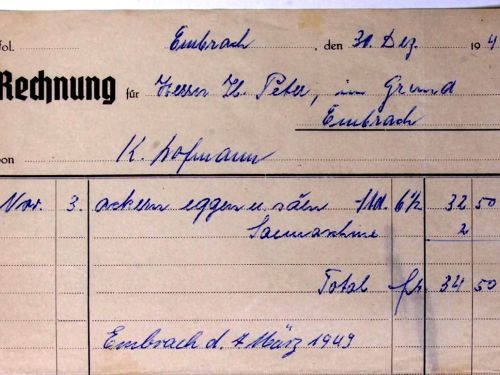 Fol. Embrach, den 30. Dez. 194
Rechnung für Herrn H. Peter, im Grund
Embrach
von K. Hofmann
Nov. 3. ackern eggen u säen Std. 6½ 32 50
Saemaschine 2
Total fr. 34 50
Embrach d. 7 März 1949